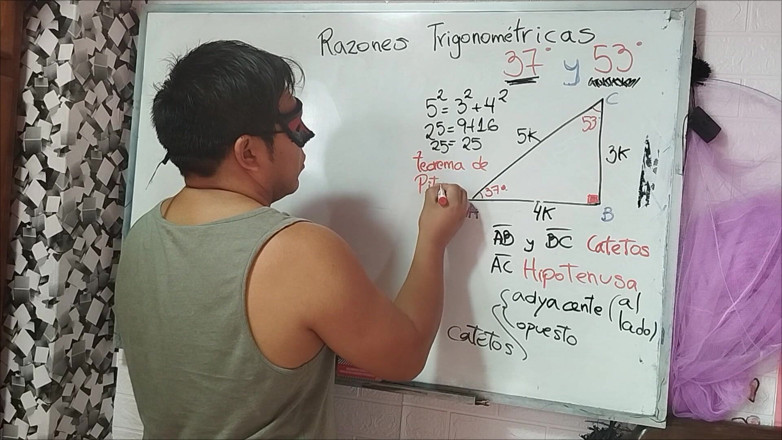 Razones Trigonométricas
37° y 53°
5² = 3² + 4²
25 = 9+16
25 = 25
teorema de
C
53°
5K
3K
37°
4K
B
AB y BC Catetos
AC Hipotenusa
catetos { adyacente (al lado)
opuesto